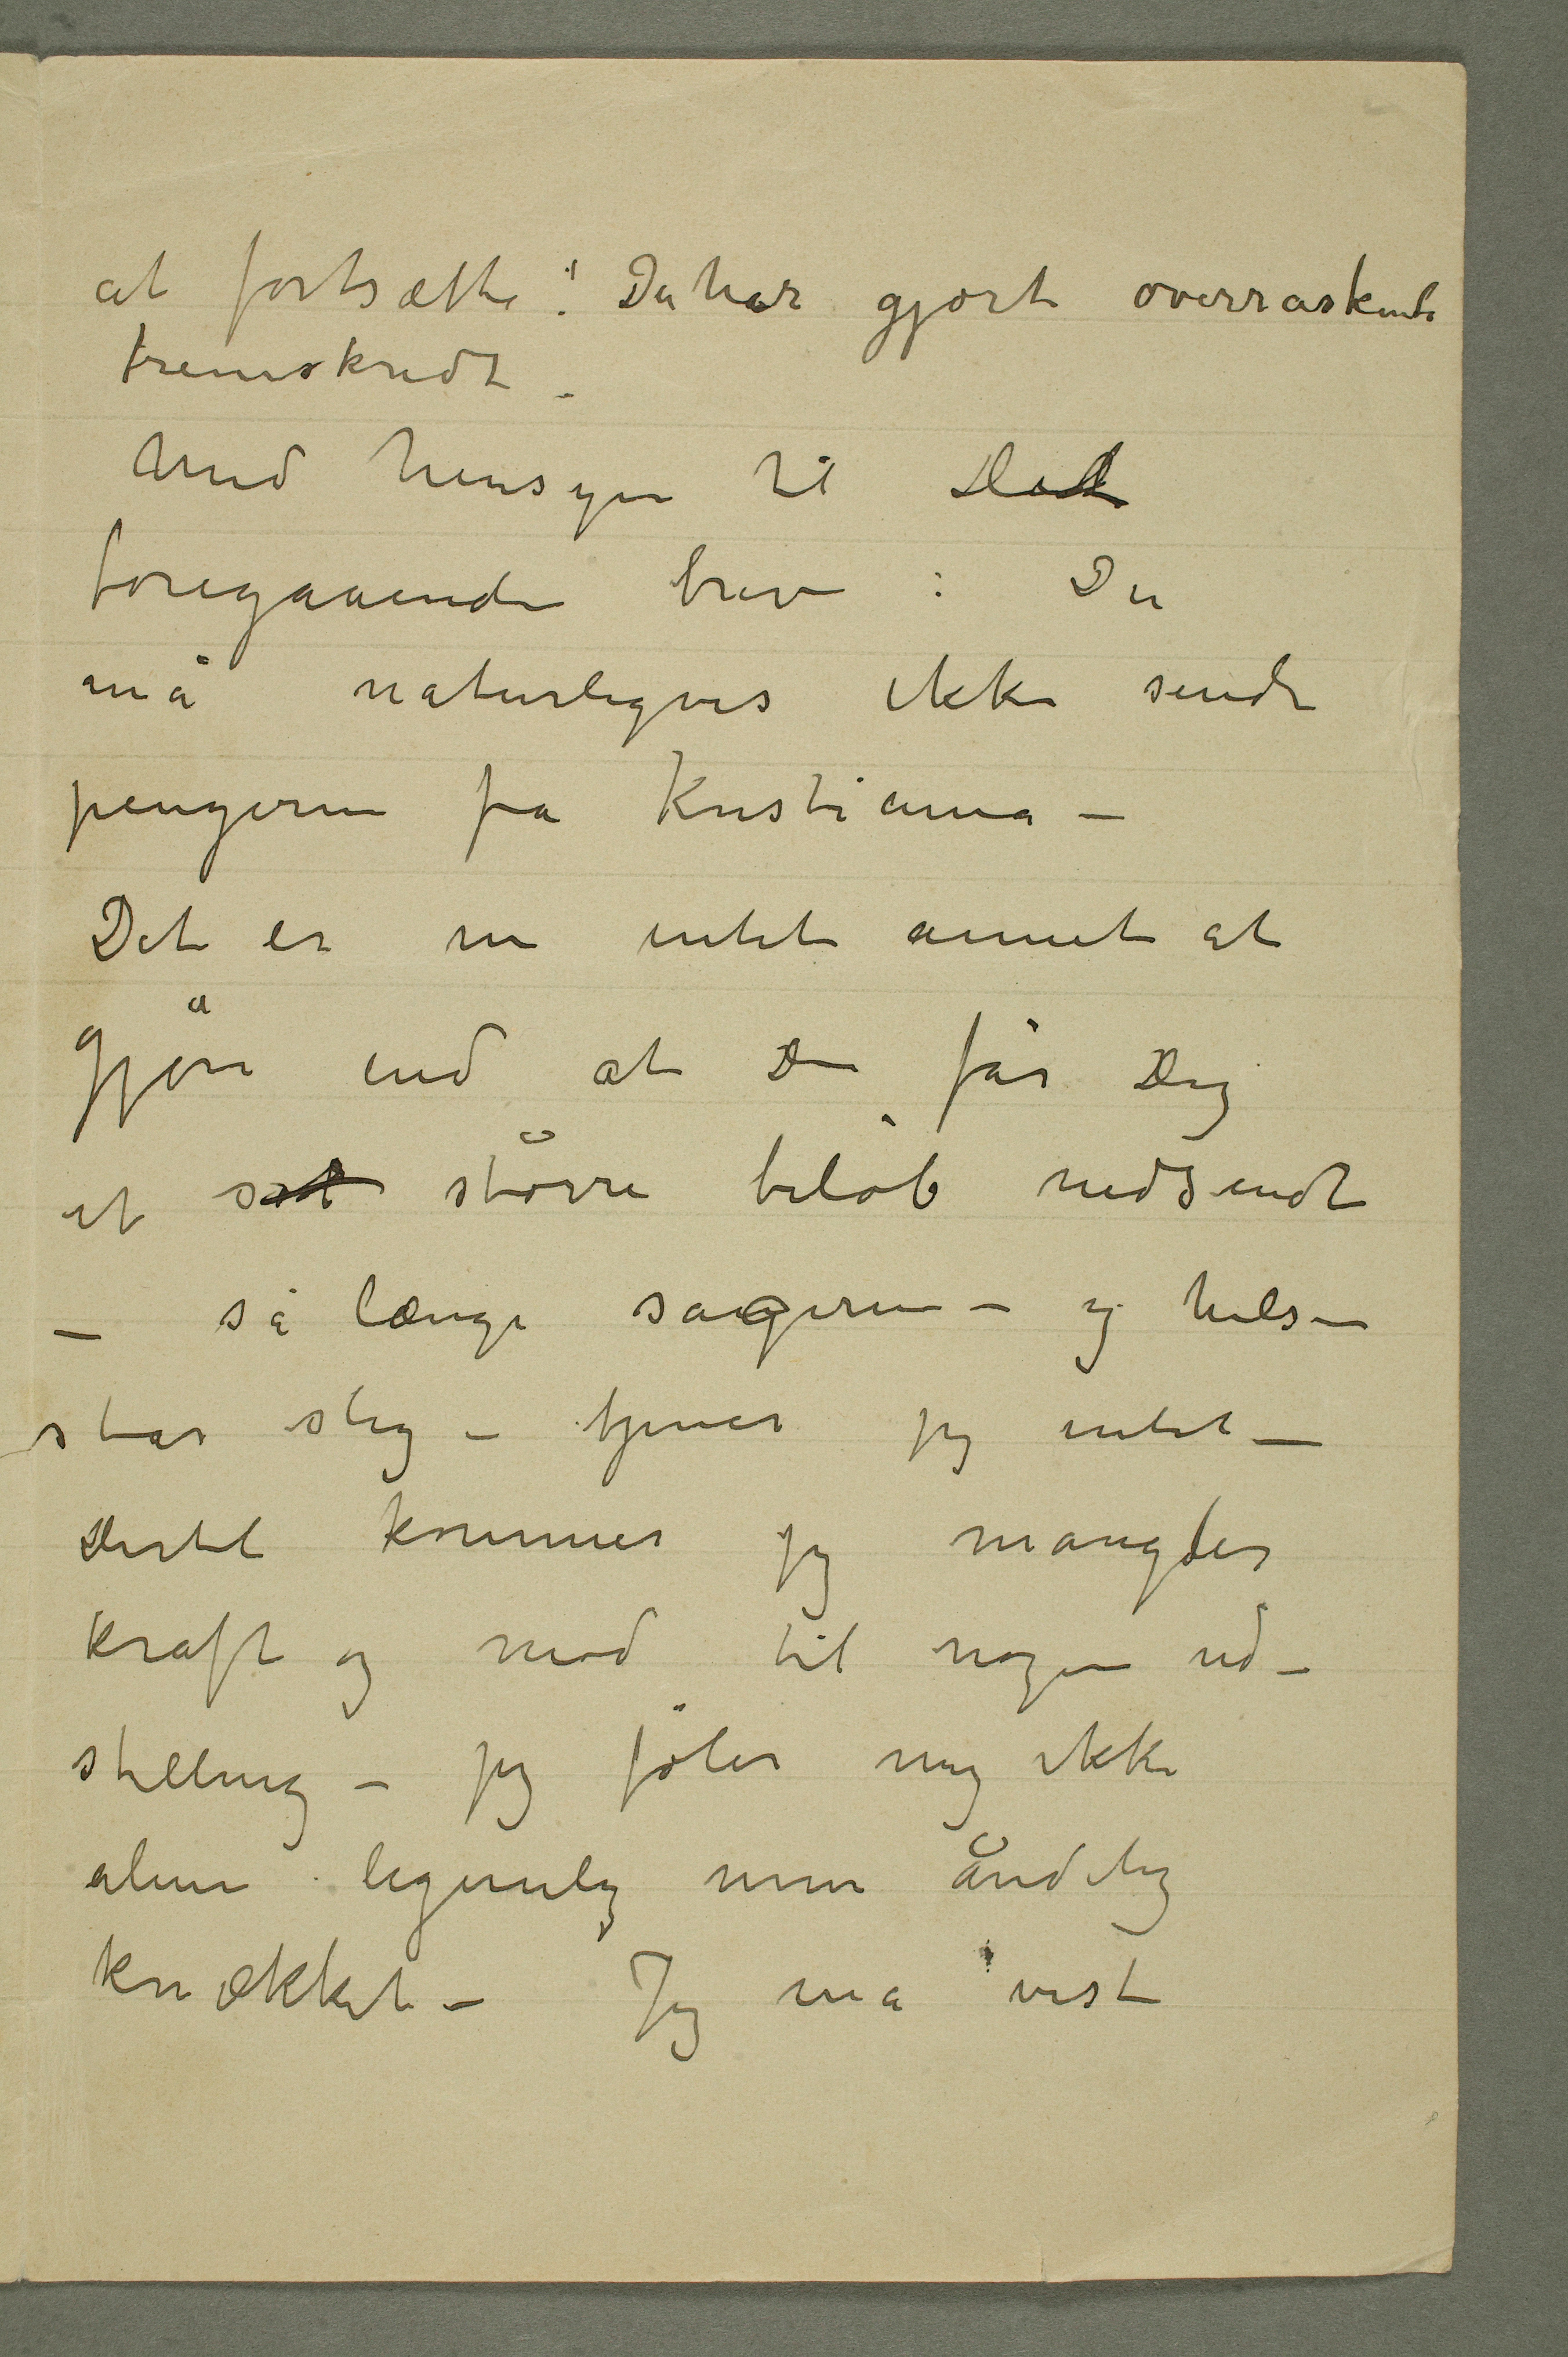 at fortsætte! Du har gjort overraskende
fremskridt –
Med hensyn til Det
foregaaende brev : Du
må naturligvis ikke sende
pengerne fra Kristiania –
Det er nu intet annet at
gjöre end at Du får Dig
et större belöb nedsendt
– så længe sagerne – og helsen
står slig – tjener jeg intet –
Dertil kommer jeg mangler
kraft og mod til nogen ud-
stilling – jeg föler mig ikke
alene legemlig men åndelig
knækket – Jeg må vist